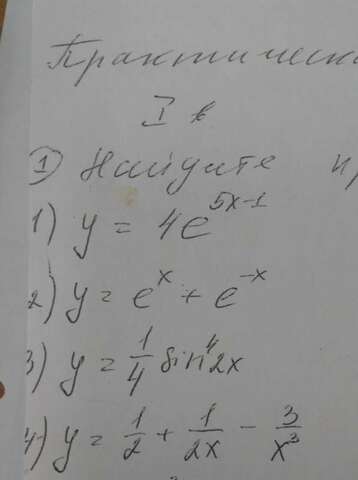 Практическ
I в
① Найдите
1) y = 4e^{5x-1}
2) y = e^x + e^{-x}
3) y = \frac{1}{4} sin^4 2x
4) y = \frac{1}{2} + \frac{1}{2x} - \frac{3}{x^3}